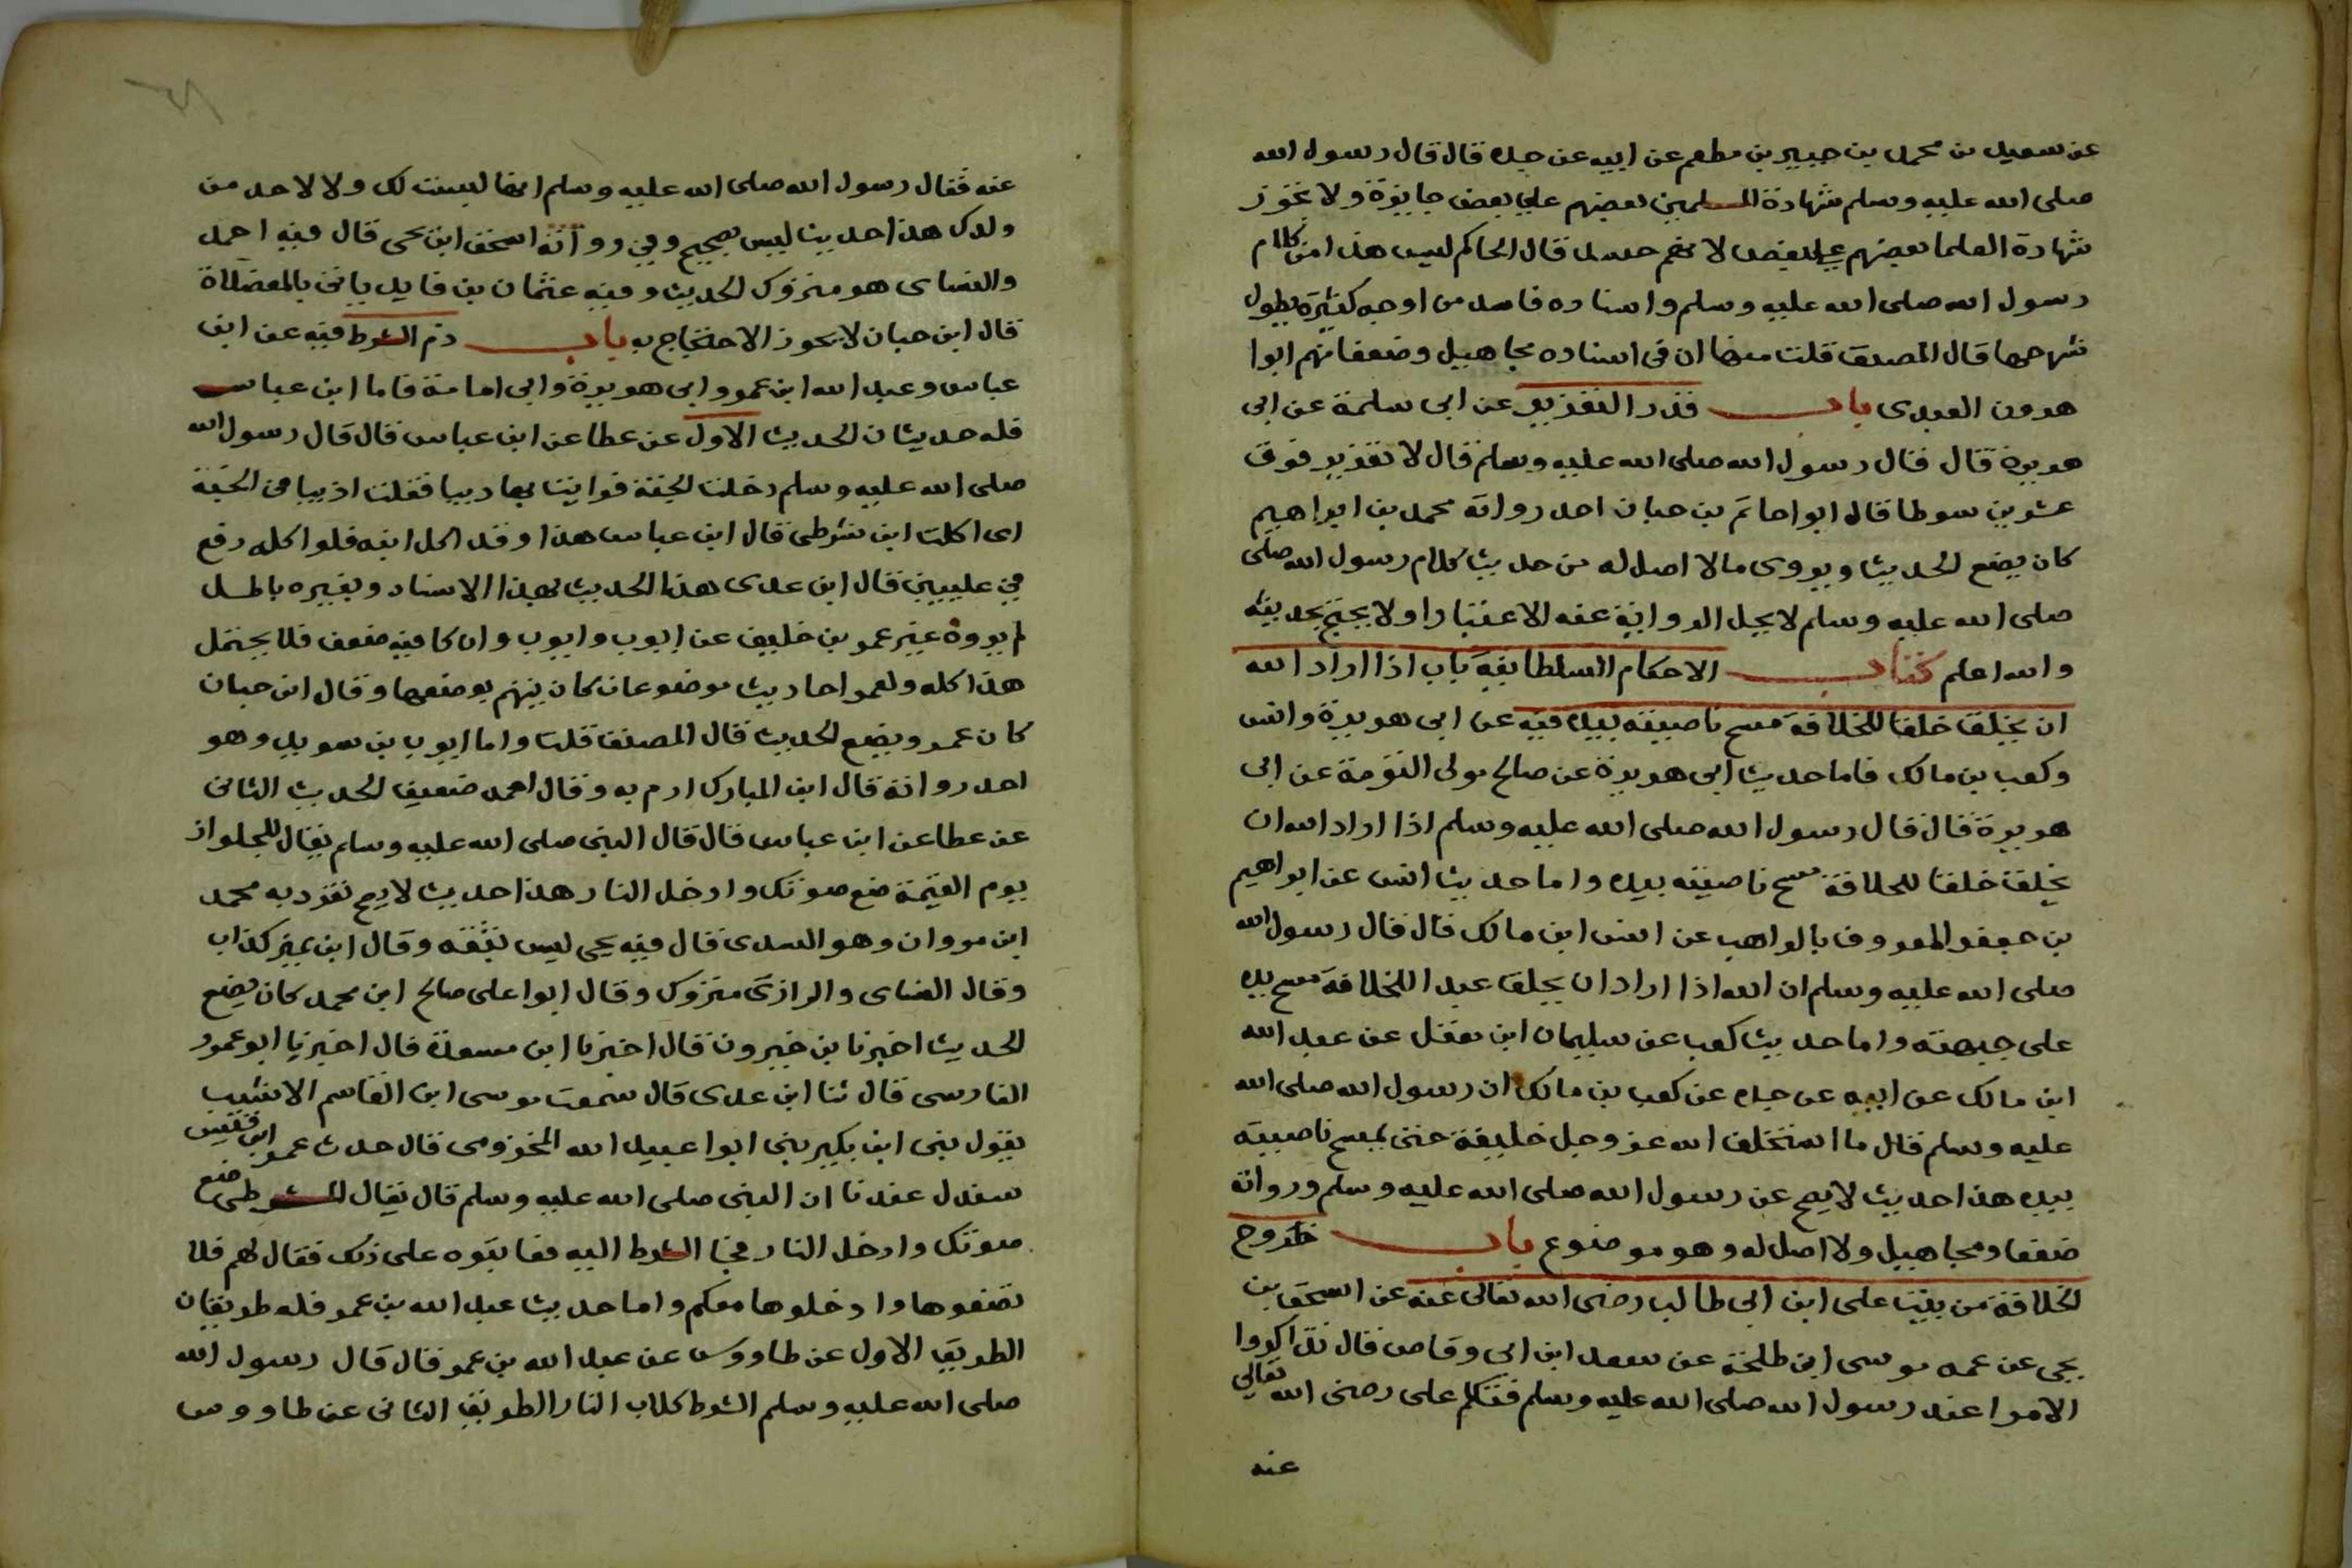 عن سعيد بن محمد بن جبير بن مطعم عن ابيه عن جده قال قال رسول الله
صلى الله عليه وسلم شهادة المسلمين بعضهم على بعض جايزة ولا تجوز
شهادة العلما بعضهم على بعض لانهم حسد قال الحاكم ليس هذا من كلام
رسول الله صلى الله عليه وسلم واسناده فاسد من اوجه كثيرة يطول
شرحها قال المصنف قلت منها ان فى اسناده مجاهيل وضعفا منهم ابوا
هرون العبدى باب قدر التعزير عن ابى سلمة عن ابى
هريرة قال قال رسول الله صلى الله عليه وسلم قال لا تعزير فوق
عشرين سوطا قال ابوا حاتم بن حبان احد رواته محمد بن ابراهيم
كان يضع الحديث ويروى مالا اصل له من حديث كلام رسول الله صلى
صلى الله عليه وسلم لا يحل الرواية عنه الا عتبارا ولا يحتج بحديثه
والله اعلم كتاب الاحكام السلطانية باب اذا اراد الله
ان يخلق خلقا للخلافة مسح ناصيته بيده فيه عن ابى هريرة وانس
وكعب بن مالك فاما حديث ابى هريرة عن صالح مولى التومة عن ابى
هريرة قال قال رسول الله صلى الله عليه وسلم اذا اراد الله ان
يخلق خلقا للخلافة مسح ناصيته بيده واما حديث انس عن ابراهيم
بن جعفر المعروف بالراهب عن انس ابن مالك قال قال رسول الله
صلى الله عليه وسلم ان الله اذا اراد ان يجلق عبدا للخلافة مسح بيده
على جبهته واما حديث كعب عن سليمان ابن معقل عن عبد الله
ابن مالك عن ابيه عن جده عن كعب بن مالك ان رسول الله صلى الله
عليه وسلم قال ما استخلف الله عز وجل خليفة حتى يمسح ناصيته
بيده هذا حديث لا يصح عن رسول الله صلى الله عليه وسلم ورواته
ضعفا ومجاهيل ولا اصل له وهو موضوع باب خروج
الخلافة من بيت على ابن ابى طالب رضى الله تعالى عنه عن اسحق بن
يحى عن عمه موسى ابن طلحة عن سعد ابن ابى وقاص قال تذاكروا
الامرا عند رسول الله صلى الله عليه وسلم فتكلم على رضى الله تعالى
عنه
عنه فقال رسول الله صلى الله عليه وسلم انها ليست لك ولا لاحد من
ولدك هذا حديث ليس بصحيح وفى رواته اسحق ابن يحى قال فيه احمد
والنساى هو متروك الحديث وفيه عثمان بن فايد ياتى بالمعضلاة
قال ابن حبان لا يجوز الاحتجاج به باب ذم الشرط فيه عن ابن
عباس وعبد الله ابن عمر وابى هريرة وابى امامة فاما ابن عباس
فله حديثان الحديث الاول عن عطا عن ابن عباس قال قال رسول الله
صلى الله عليه وسلم دخلت الجنة فرايت بها ذيبا فقلت اذيبا فى الجنة
اى اكلت ابن شرطى قال ابن عباس هذا وقد اكل ابنه فلو اكله رفع
فى عليين قال ابن عدى هذا الحديث بهذا الاسناد وبغيره باطل
لم يروه غير عمر بن خليف عن ايوب وايوب وان كا فيه ضعف فلا يحتمل
هذا كله ولعمر احاديث موضوعات كان يتهم بوضعها وقال ابن حبان
كان عمر ويضع الحديث قال المصنف قلت واما ايوب بن سويد وهو
احد رواته قال ابن المبارك ارم به وقال احمد ضعيف الحديث الثانى
عن عطا عن ابن عباس قال قال النبى صلى الله عليه وسلم يقال للجلواز
يوم القيمة ضع سوتك وادخل النار هذا حديث لا يصح تفرد به محمد
ابن مروان وهو السدى قال فيه يحى ليس بثقه وقال ابن نمير كذاب
وقال النساى والرازى متروك وقال ابوا على صالح ابن محمد كان يضع
الحديث اخبرنا بن خيرون قال اخبرنا ابن مسعدة قال اخبرنا ابو عمرو
الفارسى قال ثنا ابن عدى قال سمعت موسى ابن القاسم الاشيب
يقول ثنى ابن بكير ثنى ابوا عبيد الله المخزومى قال حدث عمر ابن قيس
سندل عندنا ان النبى صلى الله عليه وسلم قال يقال للشرطى ضع
سوتك وادخل النار فجا الشرط اليه فعاتبوه على ذلك فقال لهم فلا
تضعوها وادخلوها معكم واما حديث عبد الله بن عمر فله طريقان
الطريق الاول عن طاووس عن عبد الله بن عمر قال قال رسول الله
صلى الله عليه وسلم الشرط كلاب النار الطريق الثانى عن طاووس